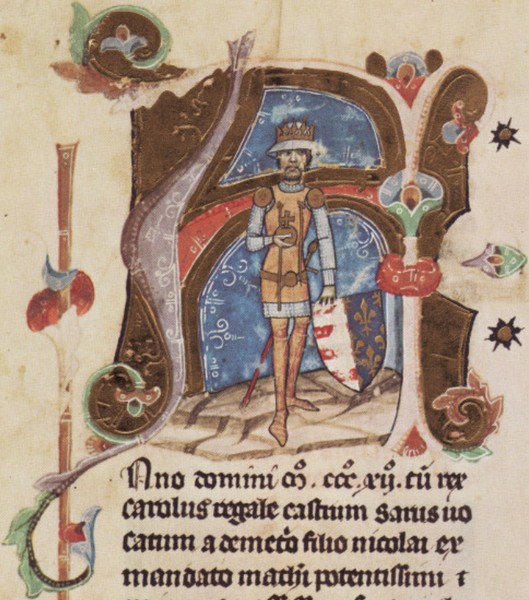 Anno domini M̊. cccͦ. xij. cū rex
carolus regale castrum Sarus uo
catum a demet̊o filio nicolai ex
mandato mathi potentissimi ⁊